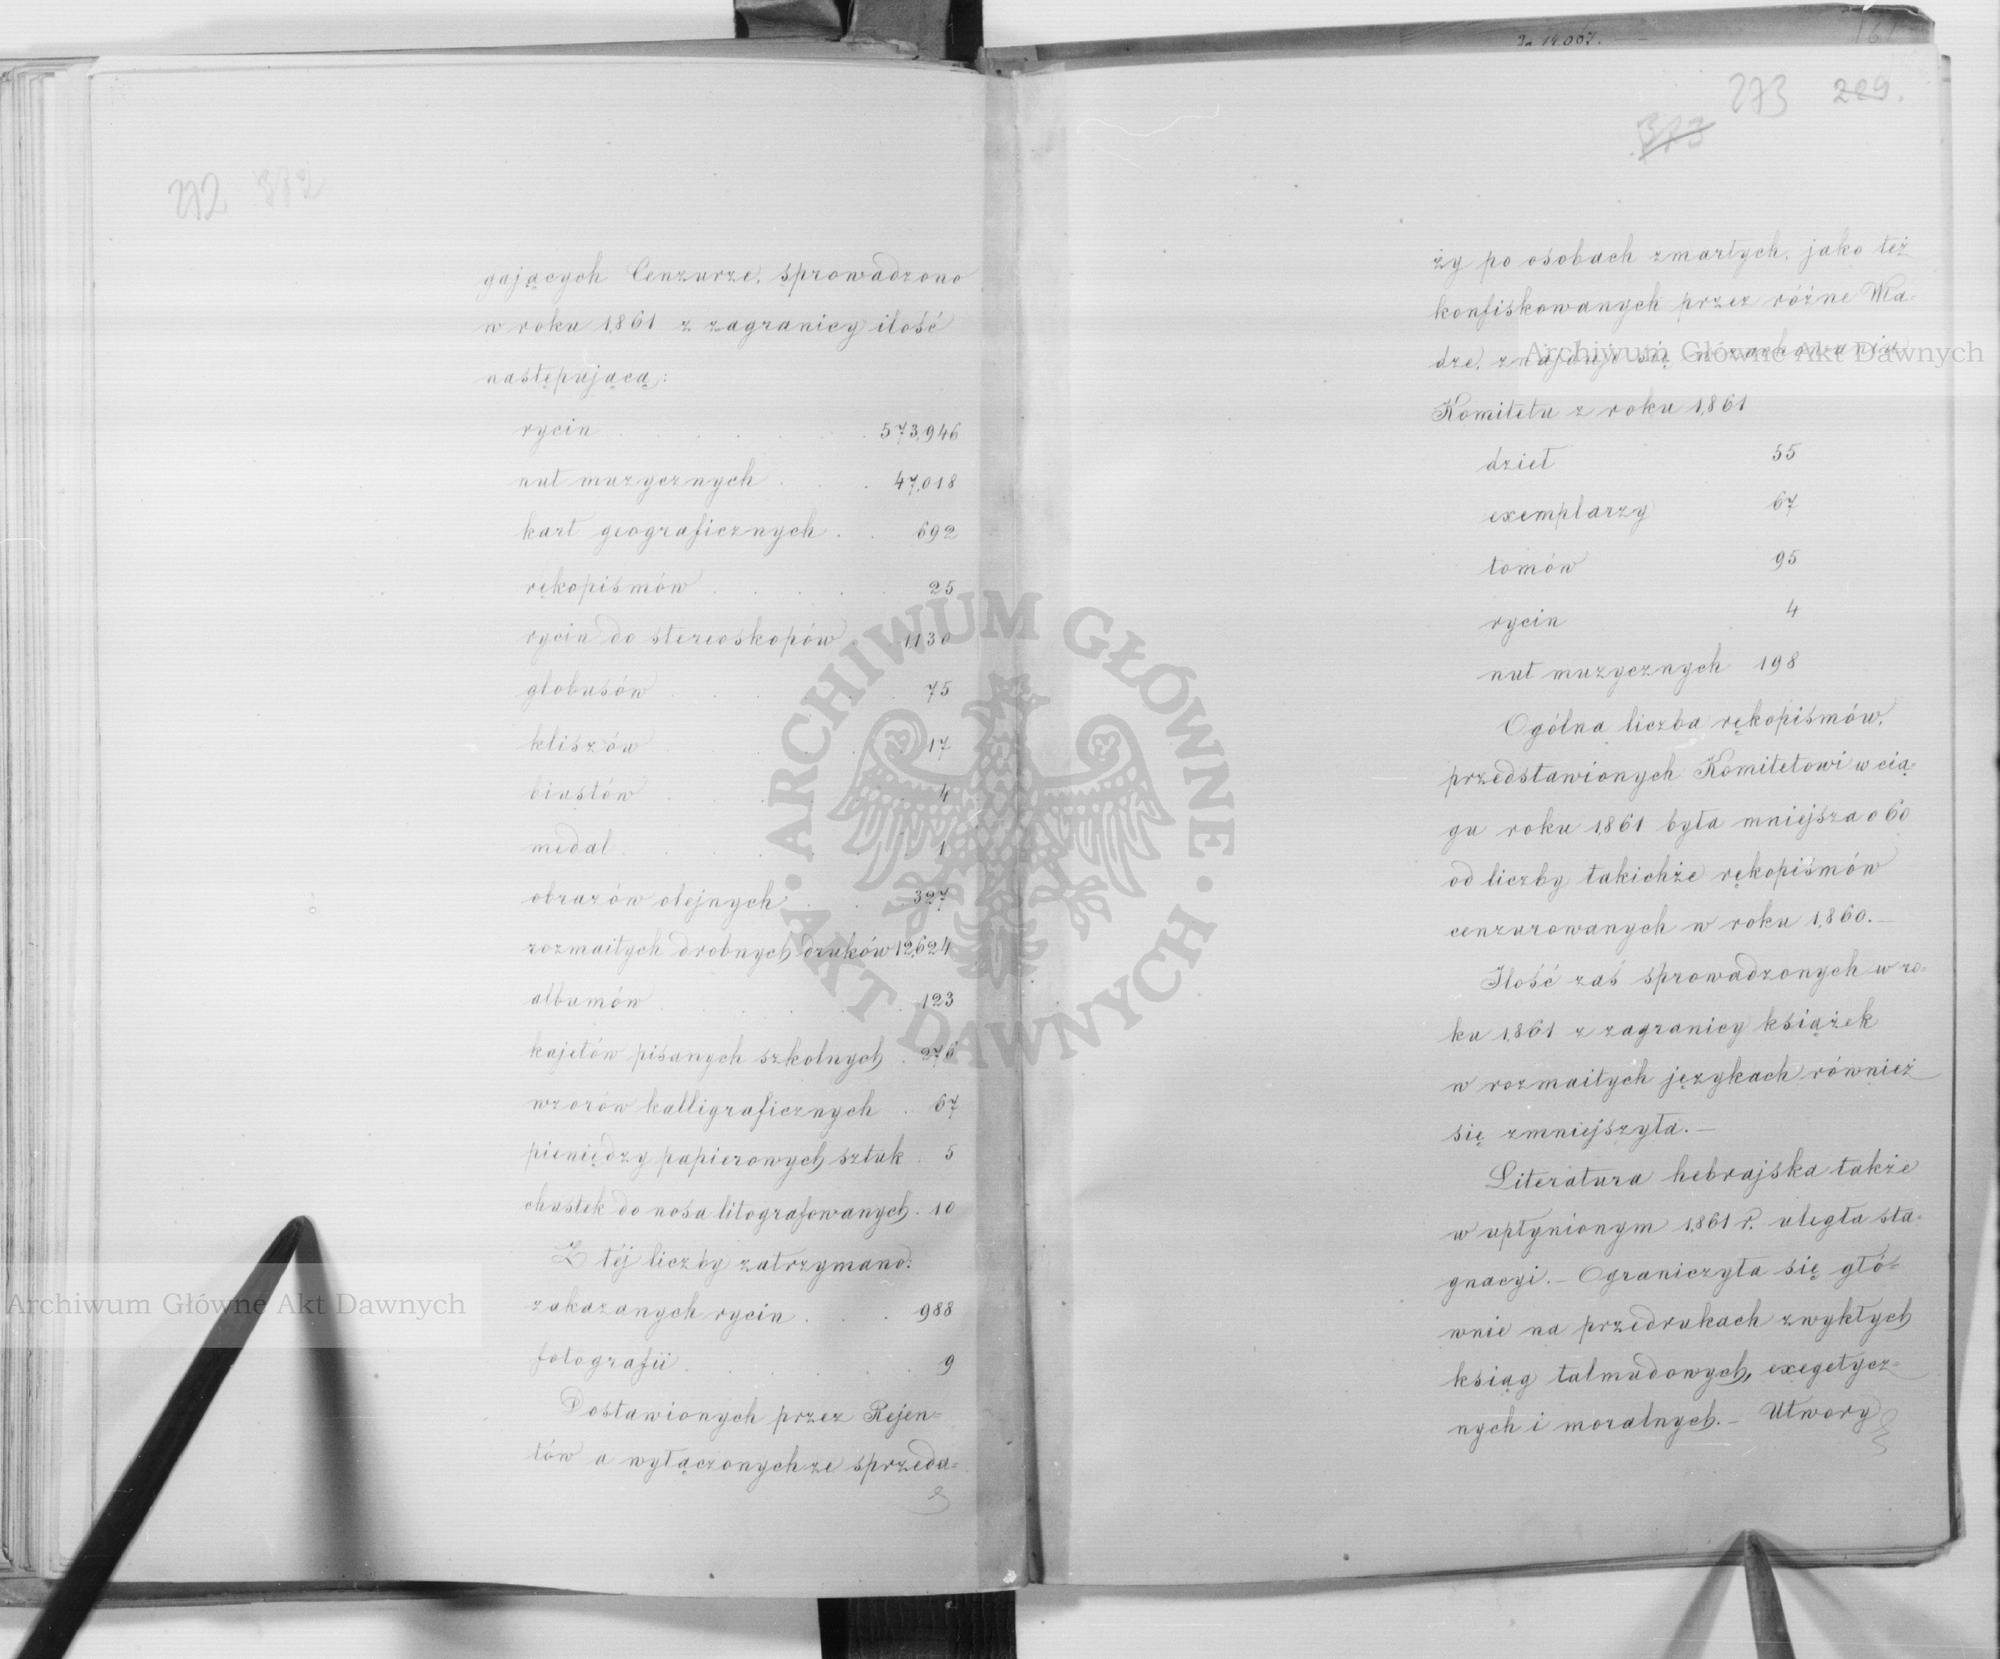 272 372
gających Cenzurze, sprowadzono
w roku 1861 z zagranicy ilość
następującą:
rycin . . . . . . 573,946
nut muzycznych . . . 47,018
kart geograficznych . . 692
rękopismów . . . . . 25
rycin do stereoskopów . 1130
globusów . . . . . 75
kliszów . . . . . 17
biustów . . . . . 4
medal . . . . . . 1
obrazów olejnych . . . 327
rozmaitych drobnych druków 12,624
albumów . . . . . 123
kajetów pisanych szkolnych . 276
wzorów kalligraficznych . 67
pieniędzy papierowych sztuk . 5
chustek do nosa litografowanych . 10
Z téj liczby zatrzymano:
zakazanych rycin . . . 988
fotografii . . . . . 9
Dostawionych przez Rejen=
tów a wyłączonych ze sprzeda=
273 229.
373
ży po osobach zmarłych, jako też
konfiskowanych przez różne Wła=
dze, znajduje się w zachowaniu
Komitetu z roku 1861
dzieł 55
exemplarzy 67
tomów 95
rycin 4
nut muzycznych 198
Ogólna liczba rękopismów,
przedstawionych Komitetowi w cią=
gu roku 1861 była mniejsza o 60
od liczby takichże rękopismów
cenzurowanych w roku 1860.—
Ilość zaś sprowadzonych w ro=
ku 1861 z zagranicy książek
w rozmaitych językach również
się zmniejszyła.—
Literatura hebrajska także
w upłynionym 1861 r. uległa sta=
gnacyi.— Ograniczyła się głó=
wnie na przedrukach zwykłych
ksiąg talmudowych, exegetycz=
nych i moralnych.— Utwory
Archiwum Główne Akt Dawnych
Archiwum Główne Akt Dawnych
ARCHIWUM GŁÓWNE
AKT DAWNYCH